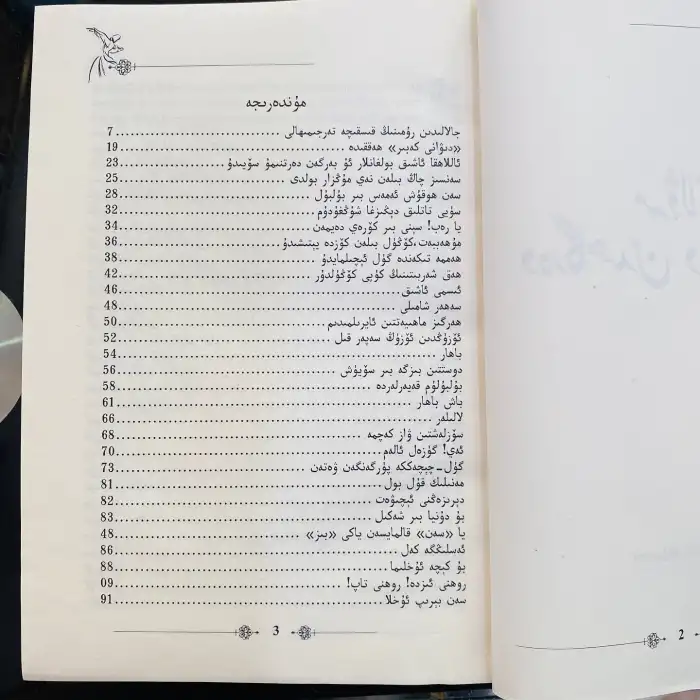 مۇندەرىجە
جالالىدىن رۇمىنىڭ قىسقىچە تەرجىمىھالى ................................ 7
«دىۋانى كەبىر» ھەققىدە ................................ 19
ئاللاھقا ئاشىق بولغانلار ئۇ بەرگەن دەرتنىمۇ سۆيىدۇ ........ 23
سەنسىز چاڭ بىلەن نەي مۇڭزار بولدى ........................ 25
سەن ھوقۇش ئەمەس بىر بۇلبۇل ........................ 28
سۈيى تاتلىق دېڭىزغا شۇڭغۇدۇم ........................ 32
يا رەب! سېنى بىر كۆرەي دەيمەن ........................ 34
مۇھەببەت، كۆڭۈل بىلەن كۆزدە يېتىشىدۇ ................ 36
ھەممە تىكەندە گۈل ئېچىلمايدۇ ........................ 38
ھەق شەربىتىنىڭ كۈپى كۆڭۈلدۇر ........................ 42
ئىسمى ئاشىق ................................ 46
سەھەر شامىلى ................................ 48
ھەرگىز ماھىيەتتىن ئايرىلمىدىم ........................ 50
ئۆزۈڭدىن ئۆزۈڭ سەپەر قىل ........................ 52
باھار ................................ 54
دوستتىن بىزگە بىر سۆيۈش ........................ 56
بۇلبۇلۇم قەيەرلەردە ................................ 58
باش باھار ................................ 61
لالىلەر ................................ 66
سۆزلەشتىن ۋاز كەچمە ................................ 68
ئەي! گۈزەل ئالەم ................................ 70
گۈل-چېچەككە پۈركەنگەن ۋەتەن ........................ 73
ھەنىلىك قۇل بول ................................ 81
دېرىزەڭنى ئېچىۋەت ................................ 82
بۇ دۇنيا بىر شەكىل ................................ 83
يا «سەن» قالمايسەن ياكى «بىز» ........................ 48
ئەسلىڭگە كەل ................................ 86
بۇ كېچە ئۇخلىما ................................ 88
روھنى ئىزدە! روھنى تاپ! ................................ 09
سەن بېرىپ ئۇخلا ................................ 91
3
2